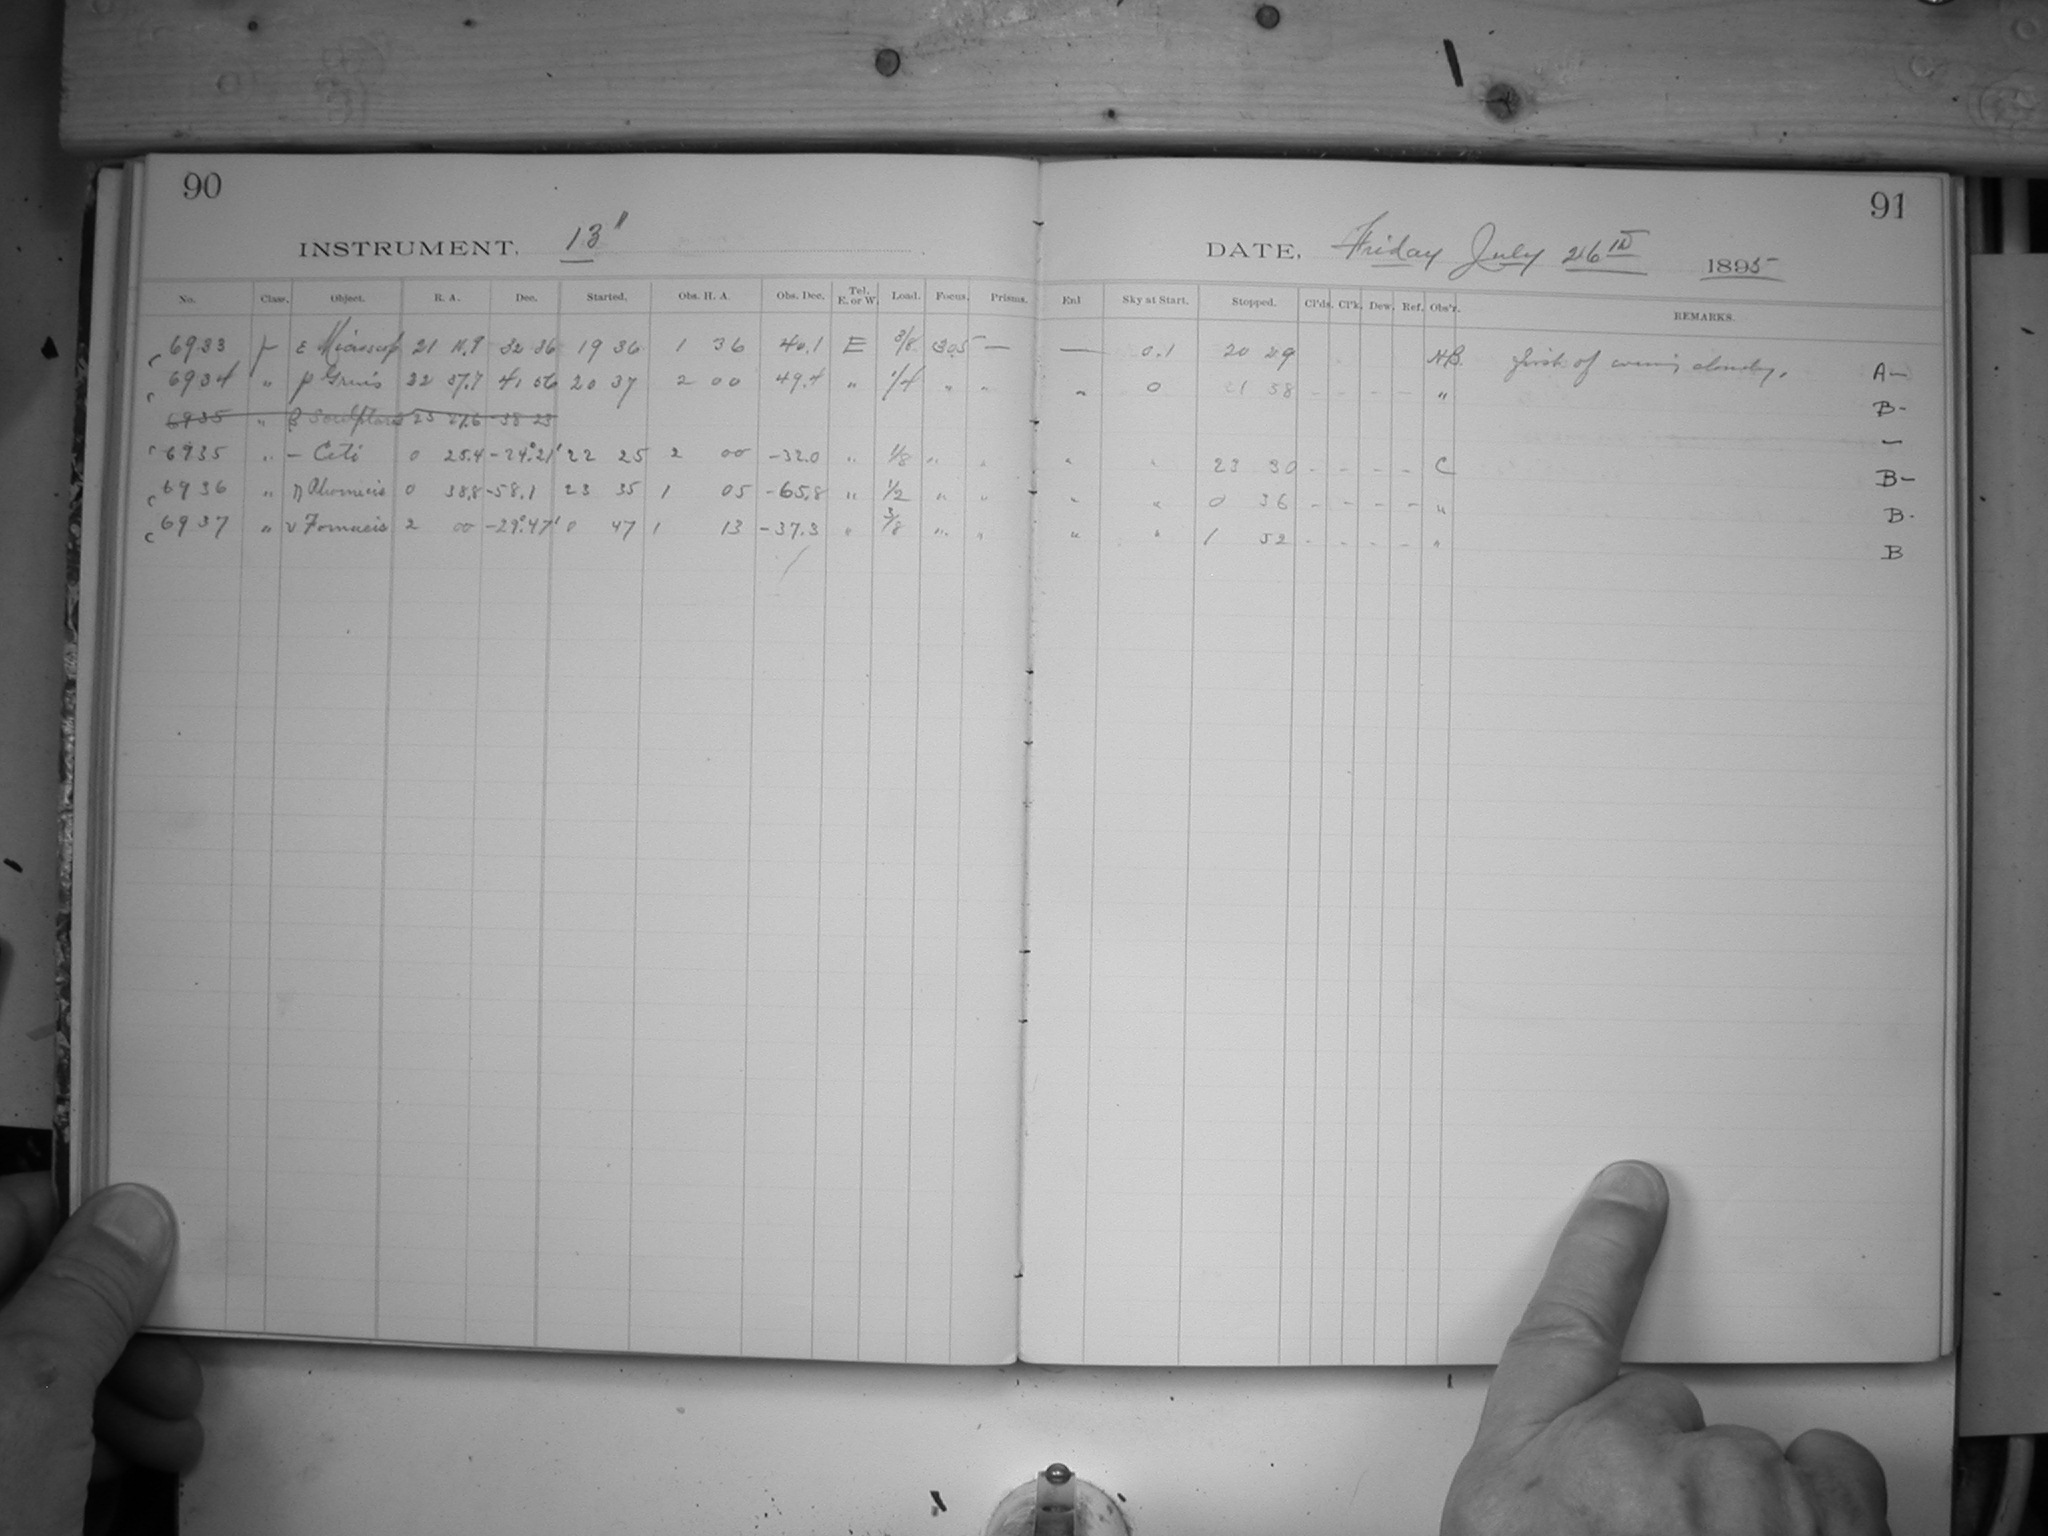 90
INSTRUMENT. 13"
No. Class. Object. R. A. Dec. Started. Obs. H. A. Obs. Dec. Tel. E. or W. Load. Focus. Prisms.
6933 ε Microscop 21 11.9 32 36 19 36 1 36 40.1 E 3/8 305 —
6934 " ρ Gruis 22 37.7 41 56 20 37 2 00 49.4 " 1/4 " "
6935 " β Sculptoris 23 27.6 -38 23
6935 " — Ceti 0 25.4 -24°21' 22 25 2 00 -32.0 " 1/8 " "
6936 " η Phoenicis 0 38.8 -58.1 23 35 1 05 -65.8 " 1/2 " "
6937 " ν Fornacis 2 00 -29°47' 0 47 1 13 -37.3 " 3/8 " "
91
DATE, Friday July 26th 1895
Enl Sky at Start. Stopped. Cl'ds. Cl'k. Dew. Ref. Obs'r. REMARKS.
— 0.1 20 29 first of evening cloudy. A—
" 0 21 38 - - - - " B-
—
" " 23 30 - - - - C B-
" " 0 36 - - - - " B-
" " 1 52 - - - - " B